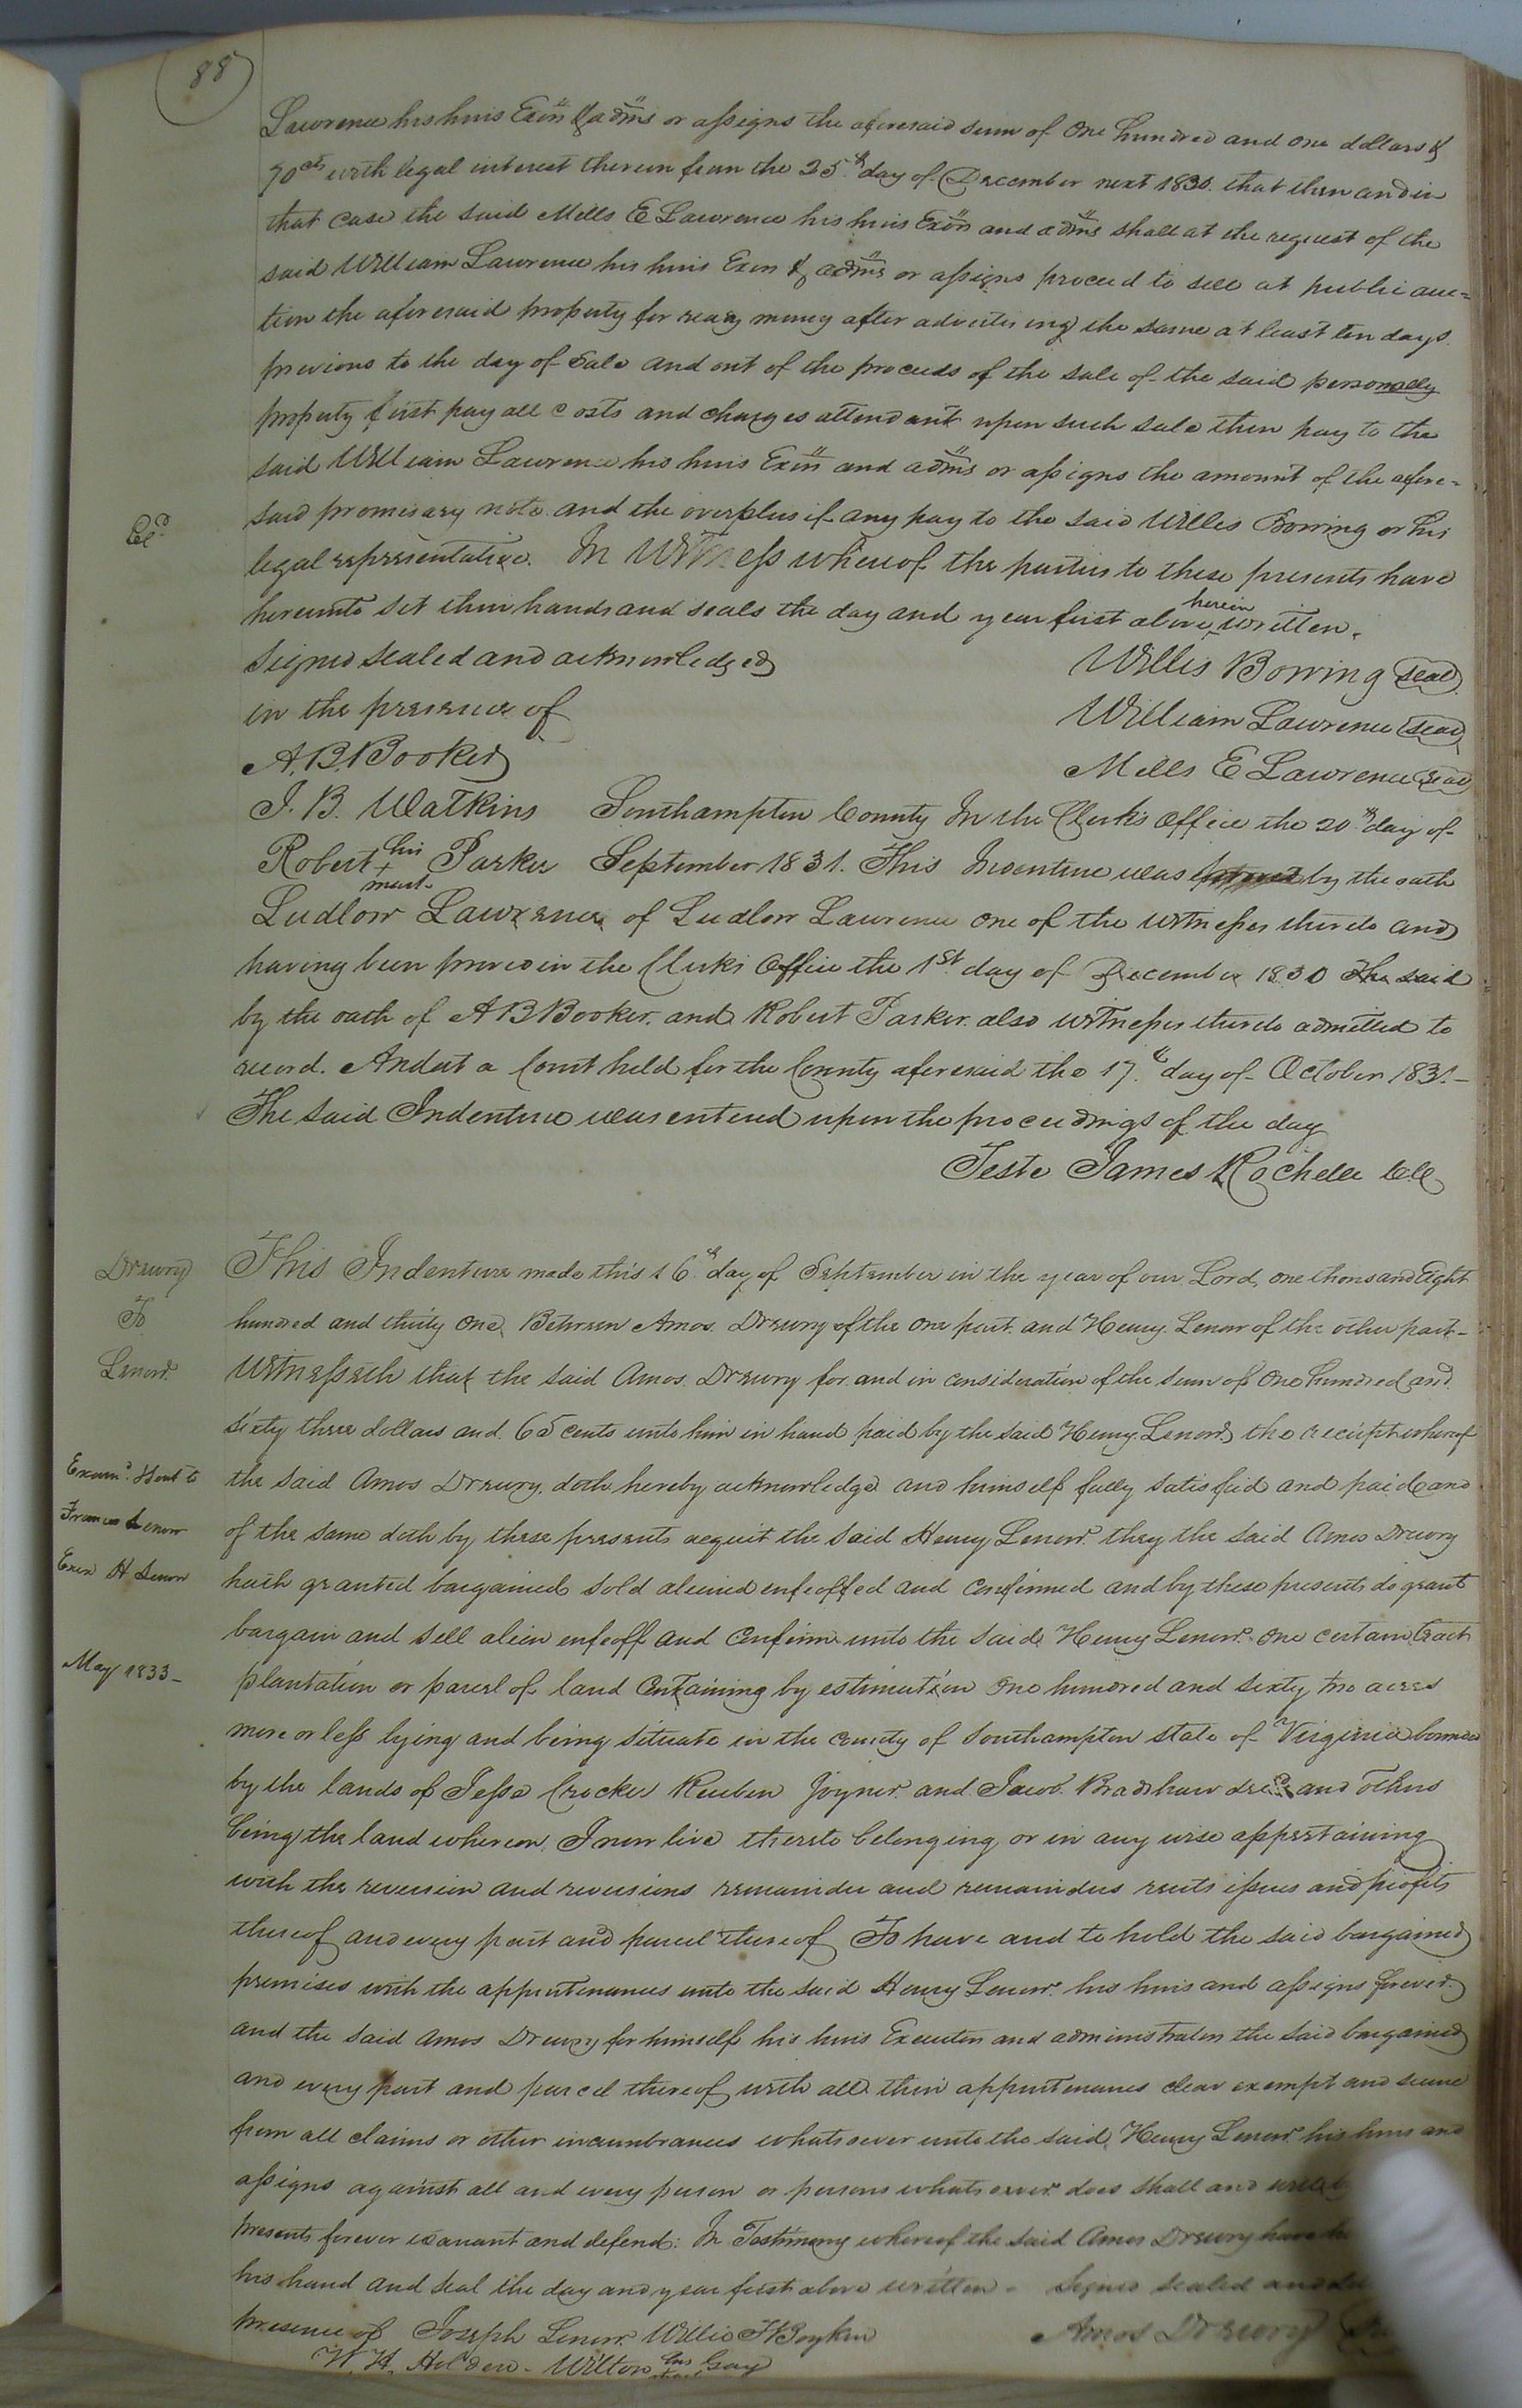 88
Lawrence his heirs Exors & adms or assigns the aforesaid sum of One hundred and one dollars &
70 cts with legal interest thereon from the 25th day of December next 1830. that then and in
that case the said Mills E Lawrence his heirs Exors and adms shall at the request of the
said William Lawrence his heirs Exors & adms or assigns proceed to sell at public auc=
tion the aforesaid property for ready money after advertising the same at least ten days
previous to the day of Sale and out of the proceeds of the sale of the said personally
property first pay all costs and charges attendant upon such sale then pay to the
said William Lawrence his heirs Exors and adms or assigns the amount of the afore=
said promissary note and the overplus if any pay to the said Willis Bowing or his
legal representative. In Witness whereof the parties to these presents have
hereunto set their hands and seals the day and year first above herein written.
Signed sealed and acknowledged Willis Bowing seal
in the presence of William Lawrence seal
A. B. Booker Mills E Lawrence seal
J. B. Watkins Southampton County In the Clerk's Office the 20th day of
Robert his mark Parker September 1831. This Indenture was by the oath
Ludlow Lawrence of Ludlow Lawrence one of the witnesses thereto and
having been proved in the Clerks Office the 1st day of December 1830 the said
by the oath of A B Booker and Robert Parker also witnesses thereto admitted to
record. And at a Court held for the County aforesaid the 17th day of October 1831.
The said Indenture was entered upon the proceedings of the day
Teste James Rochelle
Drewry
To
Lenow
Examd. & sent to
Frances Lenow
Exor H Lenow
May 1833
This Indenture made this 16th day of September in the year of our Lord, one thousand Eight
hundred and thirty one Between Amos Drewry of the one part and Henry Lenow of the other part
Witnesseth that the said Amos Drewry for and in consideration of the sum of One hundred and
sixty three dollars and 65 cents unto him in hand paid by the said Henry Lenow the receipt whereof
the said Amos Drewry doth hereby acknowledge and himself fully satisfied and paid and
of the same doth by these presents acquit the said Henry Lenow they the said Amos Drewry
hath granted bargained sold aliened enfeoffed and confirmed and by these presents do grant
bargain and sell alien enfeoff and confirm unto the said Henry Lenow one certain tract
plantation or parcel of land Containing by estimation One hundred and sixty two acres
more or less lying and being situate in the county of Southampton state of Virginia bounded
by the lands of Jesse Crocker Reuben Joyner and Jacob Bradshaw decd and others
being the land whereon I now live thereto belonging or in any wise appertaining
with the reversion and reversions remainder and remainders rents issues and profits
thereof and every part and parcel thereof To have and to hold the said bargained
premises with the appurtenances unto the said Henry Lenow his heirs and assigns forever
and the said Amos Drewry for himself his heirs Executors and administrators the said bargained
and every part and parcel thereof with all their appurtenances clear exempt and secure
from all claims or other incumbrances whatsoever unto the said Henry Lenow his heirs and
assigns against all and every person or persons whatsoever does shall and will by
presents forever warrant and defend: In Testimony whereof the said Amos Drewry have
his hand and seal the day and year first above written. Signed sealed and
presence of Joseph Lenow Willis H Boykin Amos Drewry
W. H. Holden - Wilton his Gay